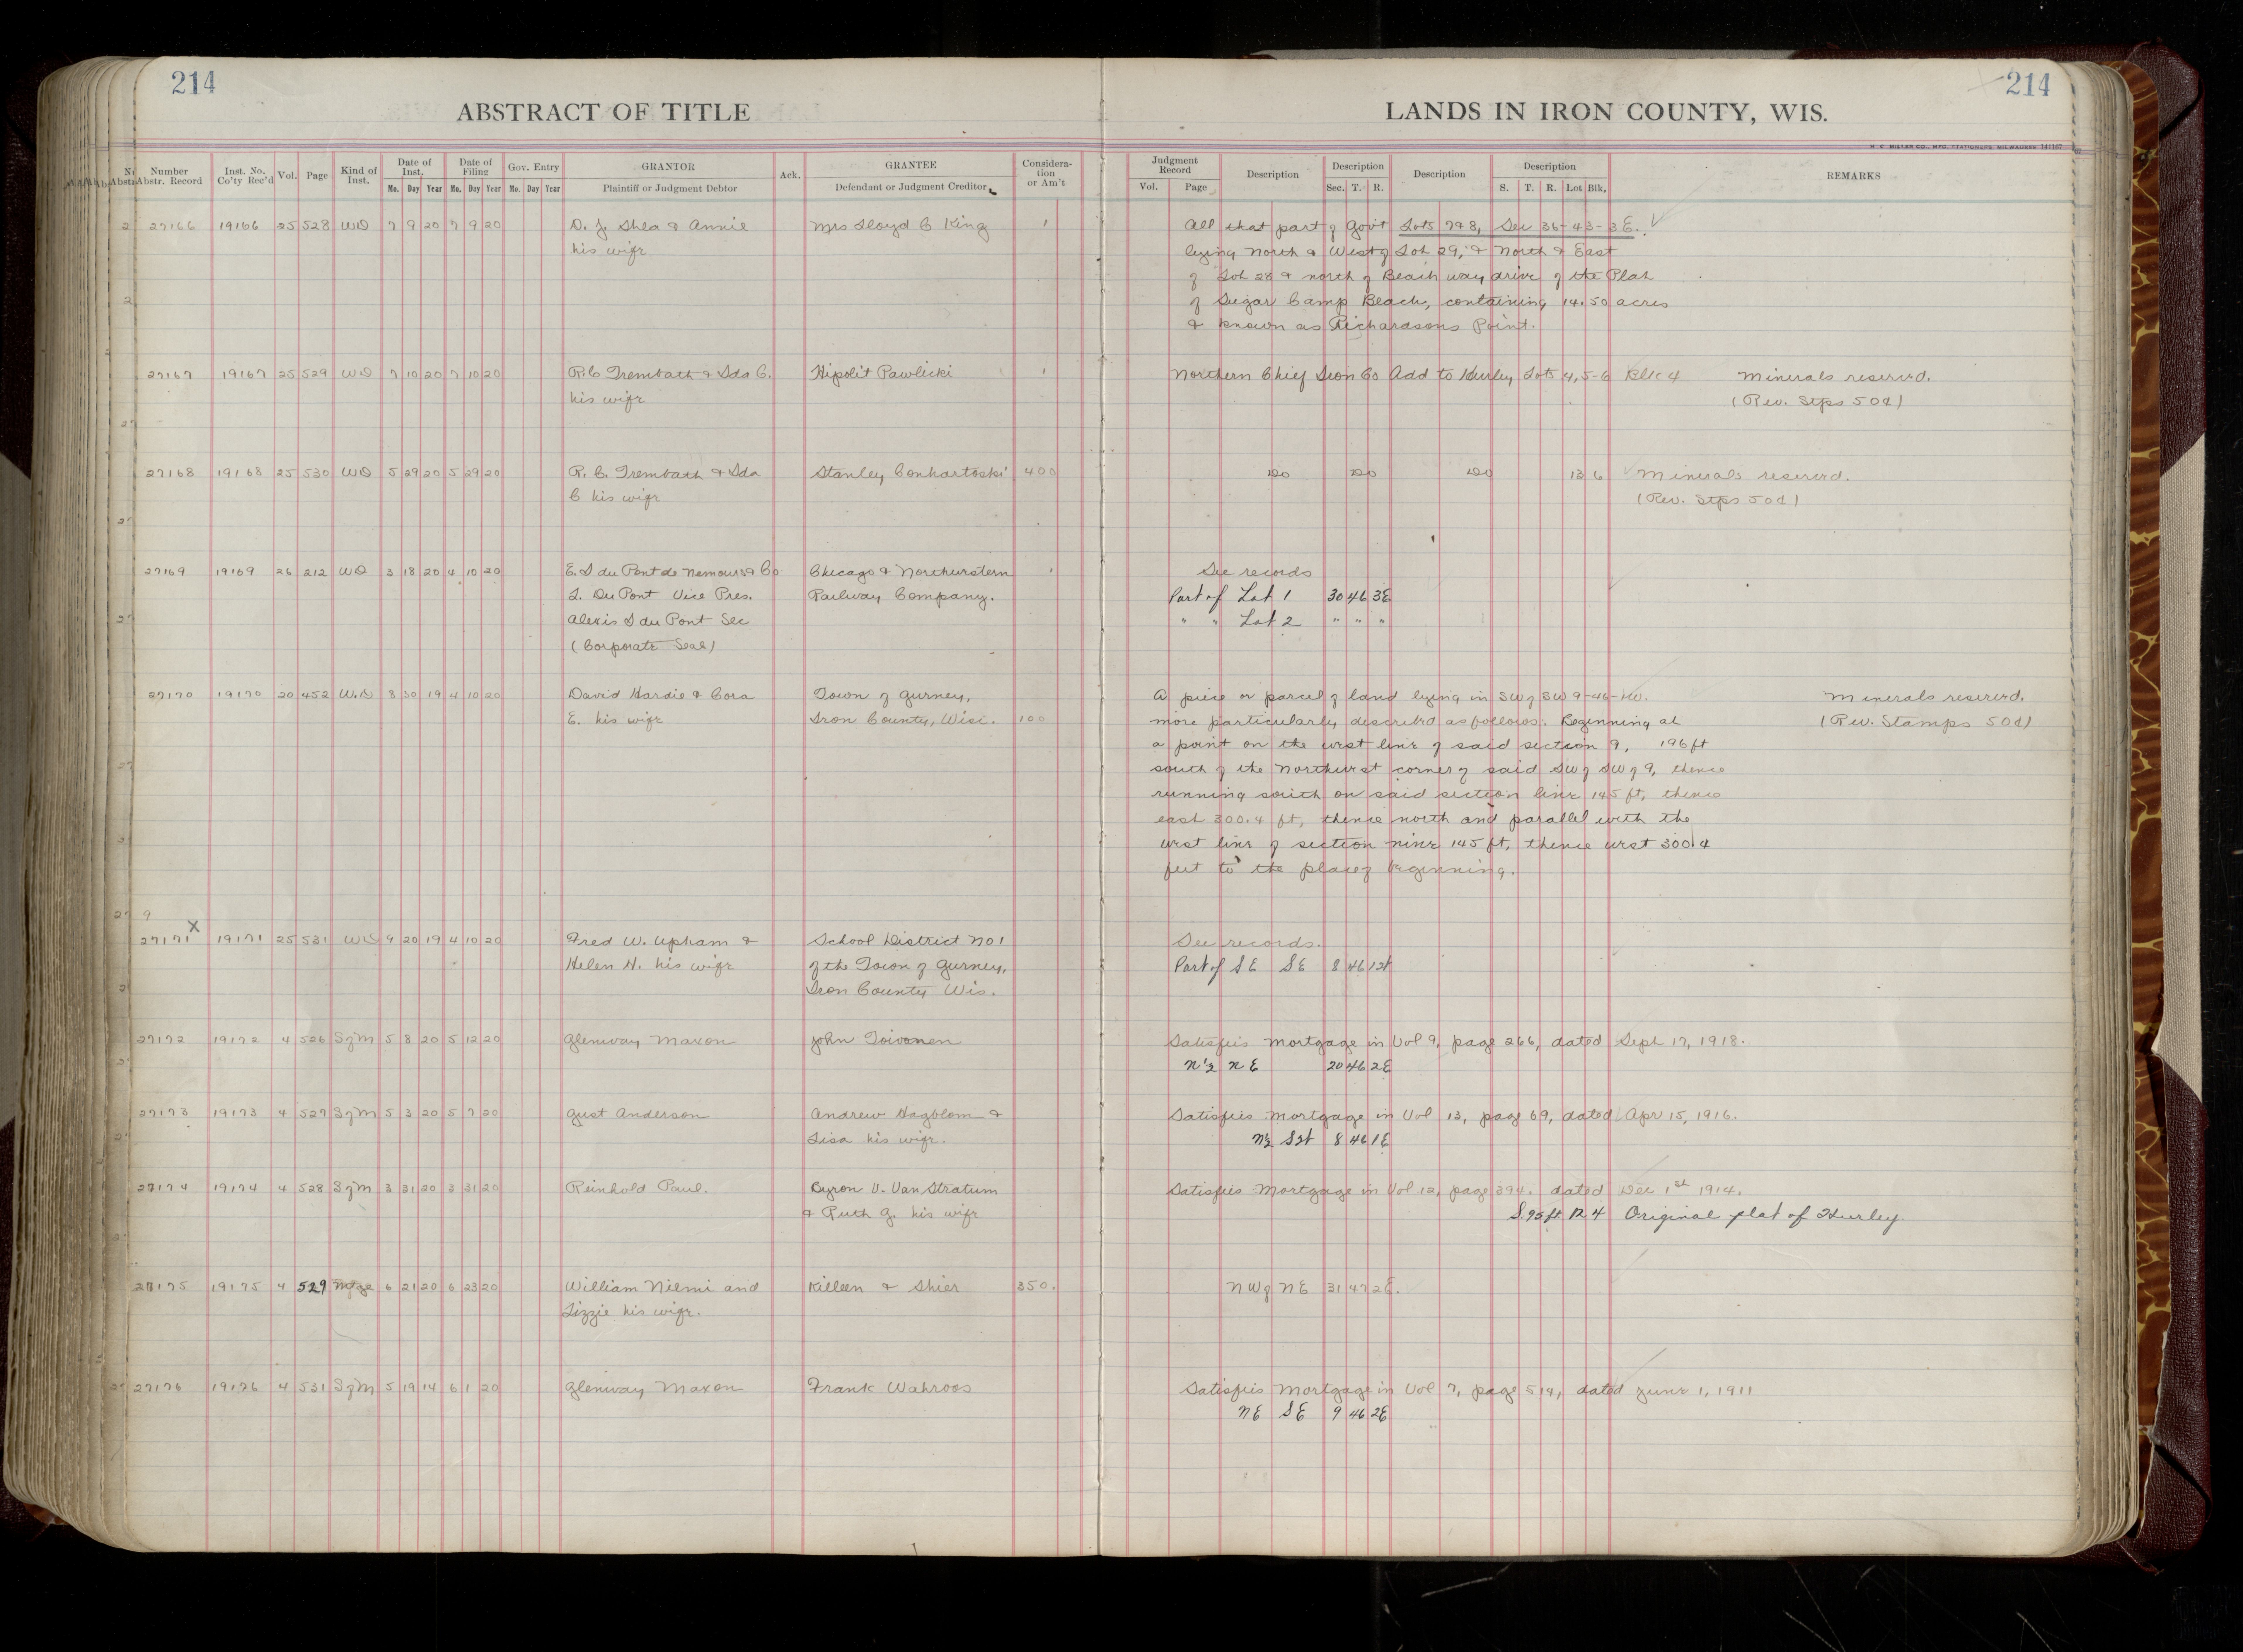 214
214
ABSTRACT OF TITLE
LANDS IN IRON COUNTY, WIS.
H. C. MILLER CO., MFG. STATIONERS, MILWAUKEE 141167
Number Abstr. Record Inst. No. Co'ty Rec'd Vol. Page Kind of Inst. Date of Inst. Date of Filing Gov. Entry GRANTOR Ack. GRANTEE Considera- tion or Am't Judgment Record Description Description Description Description REMARKS
Mo. Day Year Mo. Day Year Mo. Day Year Plaintiff or Judgment Debtor Defendant or Judgment Creditor Vol. Page Sec. T. R. S. T. R. Lot Blk.
27166 19166 25 528 WD 7 9 20 7 9 20 D. J. Shea & Annie Mrs Lloyd C King 1 All that part of Gov't Lots 7 & 8, Sec 36-43-3E.
his wife lying North & West of Lot 29, & North & East
of Lot 28 & north of Beach way drive of the Plat
of Sugar Camp Beach, containing 14.50 acres
& known as Richardsons Point.
27167 19167 25 529 WD 7 10 20 7 10 20 R.C Trembath & Ida C. Hipolit Pawlicki 1 Northern Chief Iron Co Add to Hurley Lots 4, 5-6 Blk 4 Minerals reserved.
his wife (Rev. Stps 50¢)
27168 19168 25 530 WD 5 29 20 5 29 20 R. C. Trembath & Ida Stanley Conhartoski 400 Do Do Do 13 6 Minerals reserved.
C his wife (Rev. Stps 50¢)
27169 19169 26 212 WD 3 18 20 4 10 20 E. I du Pont de Nemours & Co Chicago & Northwestern 1 See records
L. Du Pont Vice Pres. Railway Company. Part of Lot 1 30 46 3E
Alexis I du Pont Sec " " Lot 2 " " "
(Corporate Seal)
27170 19170 20 452 W.D 8 30 19 4 10 20 David Hardie & Cora Town of Gurney, A piece or parcel of land lying in SW of SW 9-46-1W. Minerals reserved.
E. his wife Iron County, Wisc. 100 more particularly described as follows: Beginning at (Rev. Stamps 50¢)
a point on the west line of said section 9, 196 ft
south of the Northwest corner of said SW of SW of 9, thence
running south on said section line 145 ft, thence
east 300.4 ft, thence north and parallel with the
west line of section nine 145 ft, thence west 300.4
feet to the place of beginning.
27171 X 19171 25 531 WD 9 20 19 4 10 20 Fred W. Upham & School District No 1 See records.
Helen H. his wife of the Town of Gurney, Part of SE SE 8 46 1W
Iron County Wis.
27172 19172 4 526 S of M 5 8 20 5 12 20 Glenway Maxon John Toivonen Satisfies Mortgage in Vol 9, page 266, dated Sept 17, 1918.
N½ NE 20 46 2E
27173 19173 4 527 S of M 5 3 20 5 7 20 Gust Anderson Andrew Hagblom & Satisfies Mortgage in Vol 13, page 69, dated Apr 15, 1916.
Lisa his wife. N½ SW 8 46 1E
27174 19174 4 528 S of M 3 31 20 3 31 20 Reinhold Paul. Byron V. Van Stratum Satisfies Mortgage in Vol 12, page 394. dated Dec 1st 1914.
& Ruth G. his wife S. 95 ft. 12 4 Original plat of Hurley
27175 19175 4 529 Mtge 6 21 20 6 23 20 William Niemi and Killeen & Shier 350. NW of NE 31 47 2E.
Lizzie his wife.
27176 19176 4 531 S of M 5 19 14 6 1 20 Glenway Maxon Frank Wahroos Satisfies Mortgage in Vol 7, page 514, dated June 1, 1911
NE SE 9 46 2E